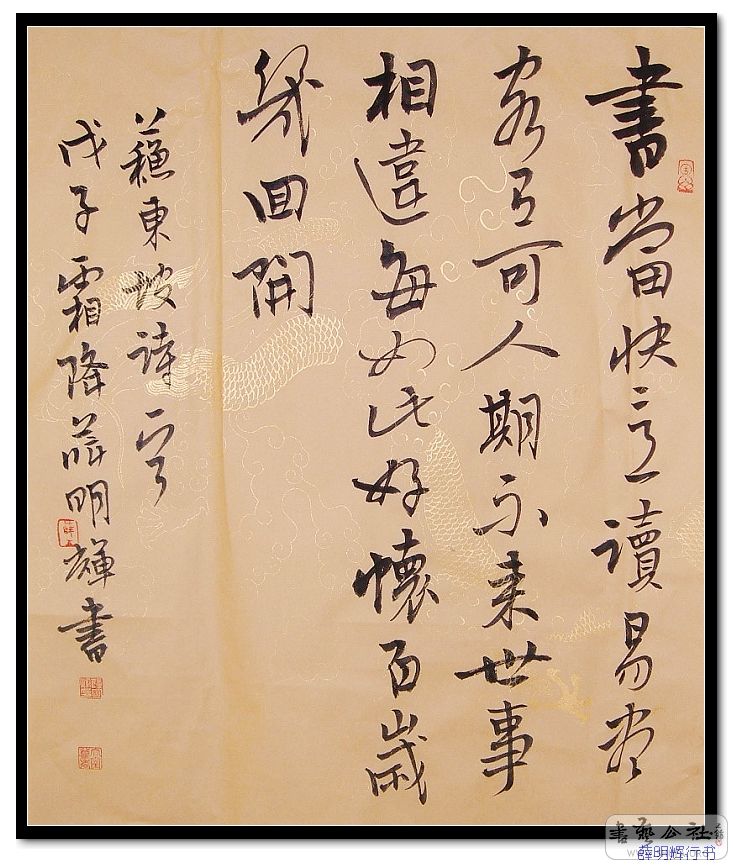 書當快意讀易盡
客有可人期不来世事
相違每如此好懷百歲
幾回開
蘓東坡诗一首
戊子霜降薛明輝書
書藝公社
薛明辉行书